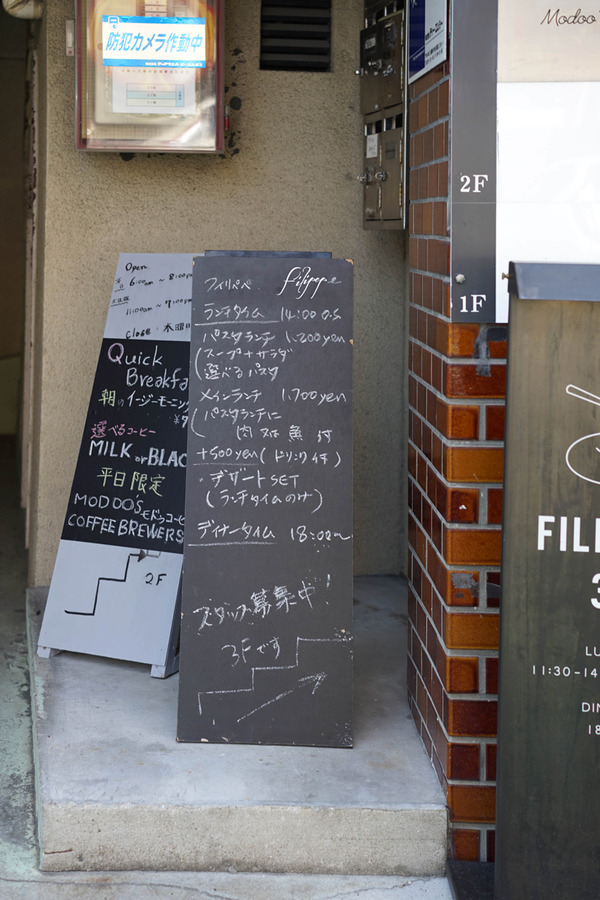 防犯カメラ作動中
Modoo
2F
1F
Open
6:00am ~ 8:00pm
11:00am ~ 7:00pm
Close 木曜日
Quick
Breakfa
朝のイージーモーニン
選べるコーヒー
MILK or BLAC
平日限定
MODDO's モドゥコーヒ
COFFEE BREWERS
2F
フィリペペ filipepe
ランチタイム 14:00 o.s
パスタランチ 1.200yen
(スープ+サラダ
選べるパスタ
メインランチ 1.700yen
(パスタランチに
肉 又は 魚 付
+500yen (ドリンク付)
・デザートSET
(ランチタイムのみ)
ディナータイム 18:00~
スタッフ募集中!
3Fです
FILI
3
LU
11:30-14
DIN
18